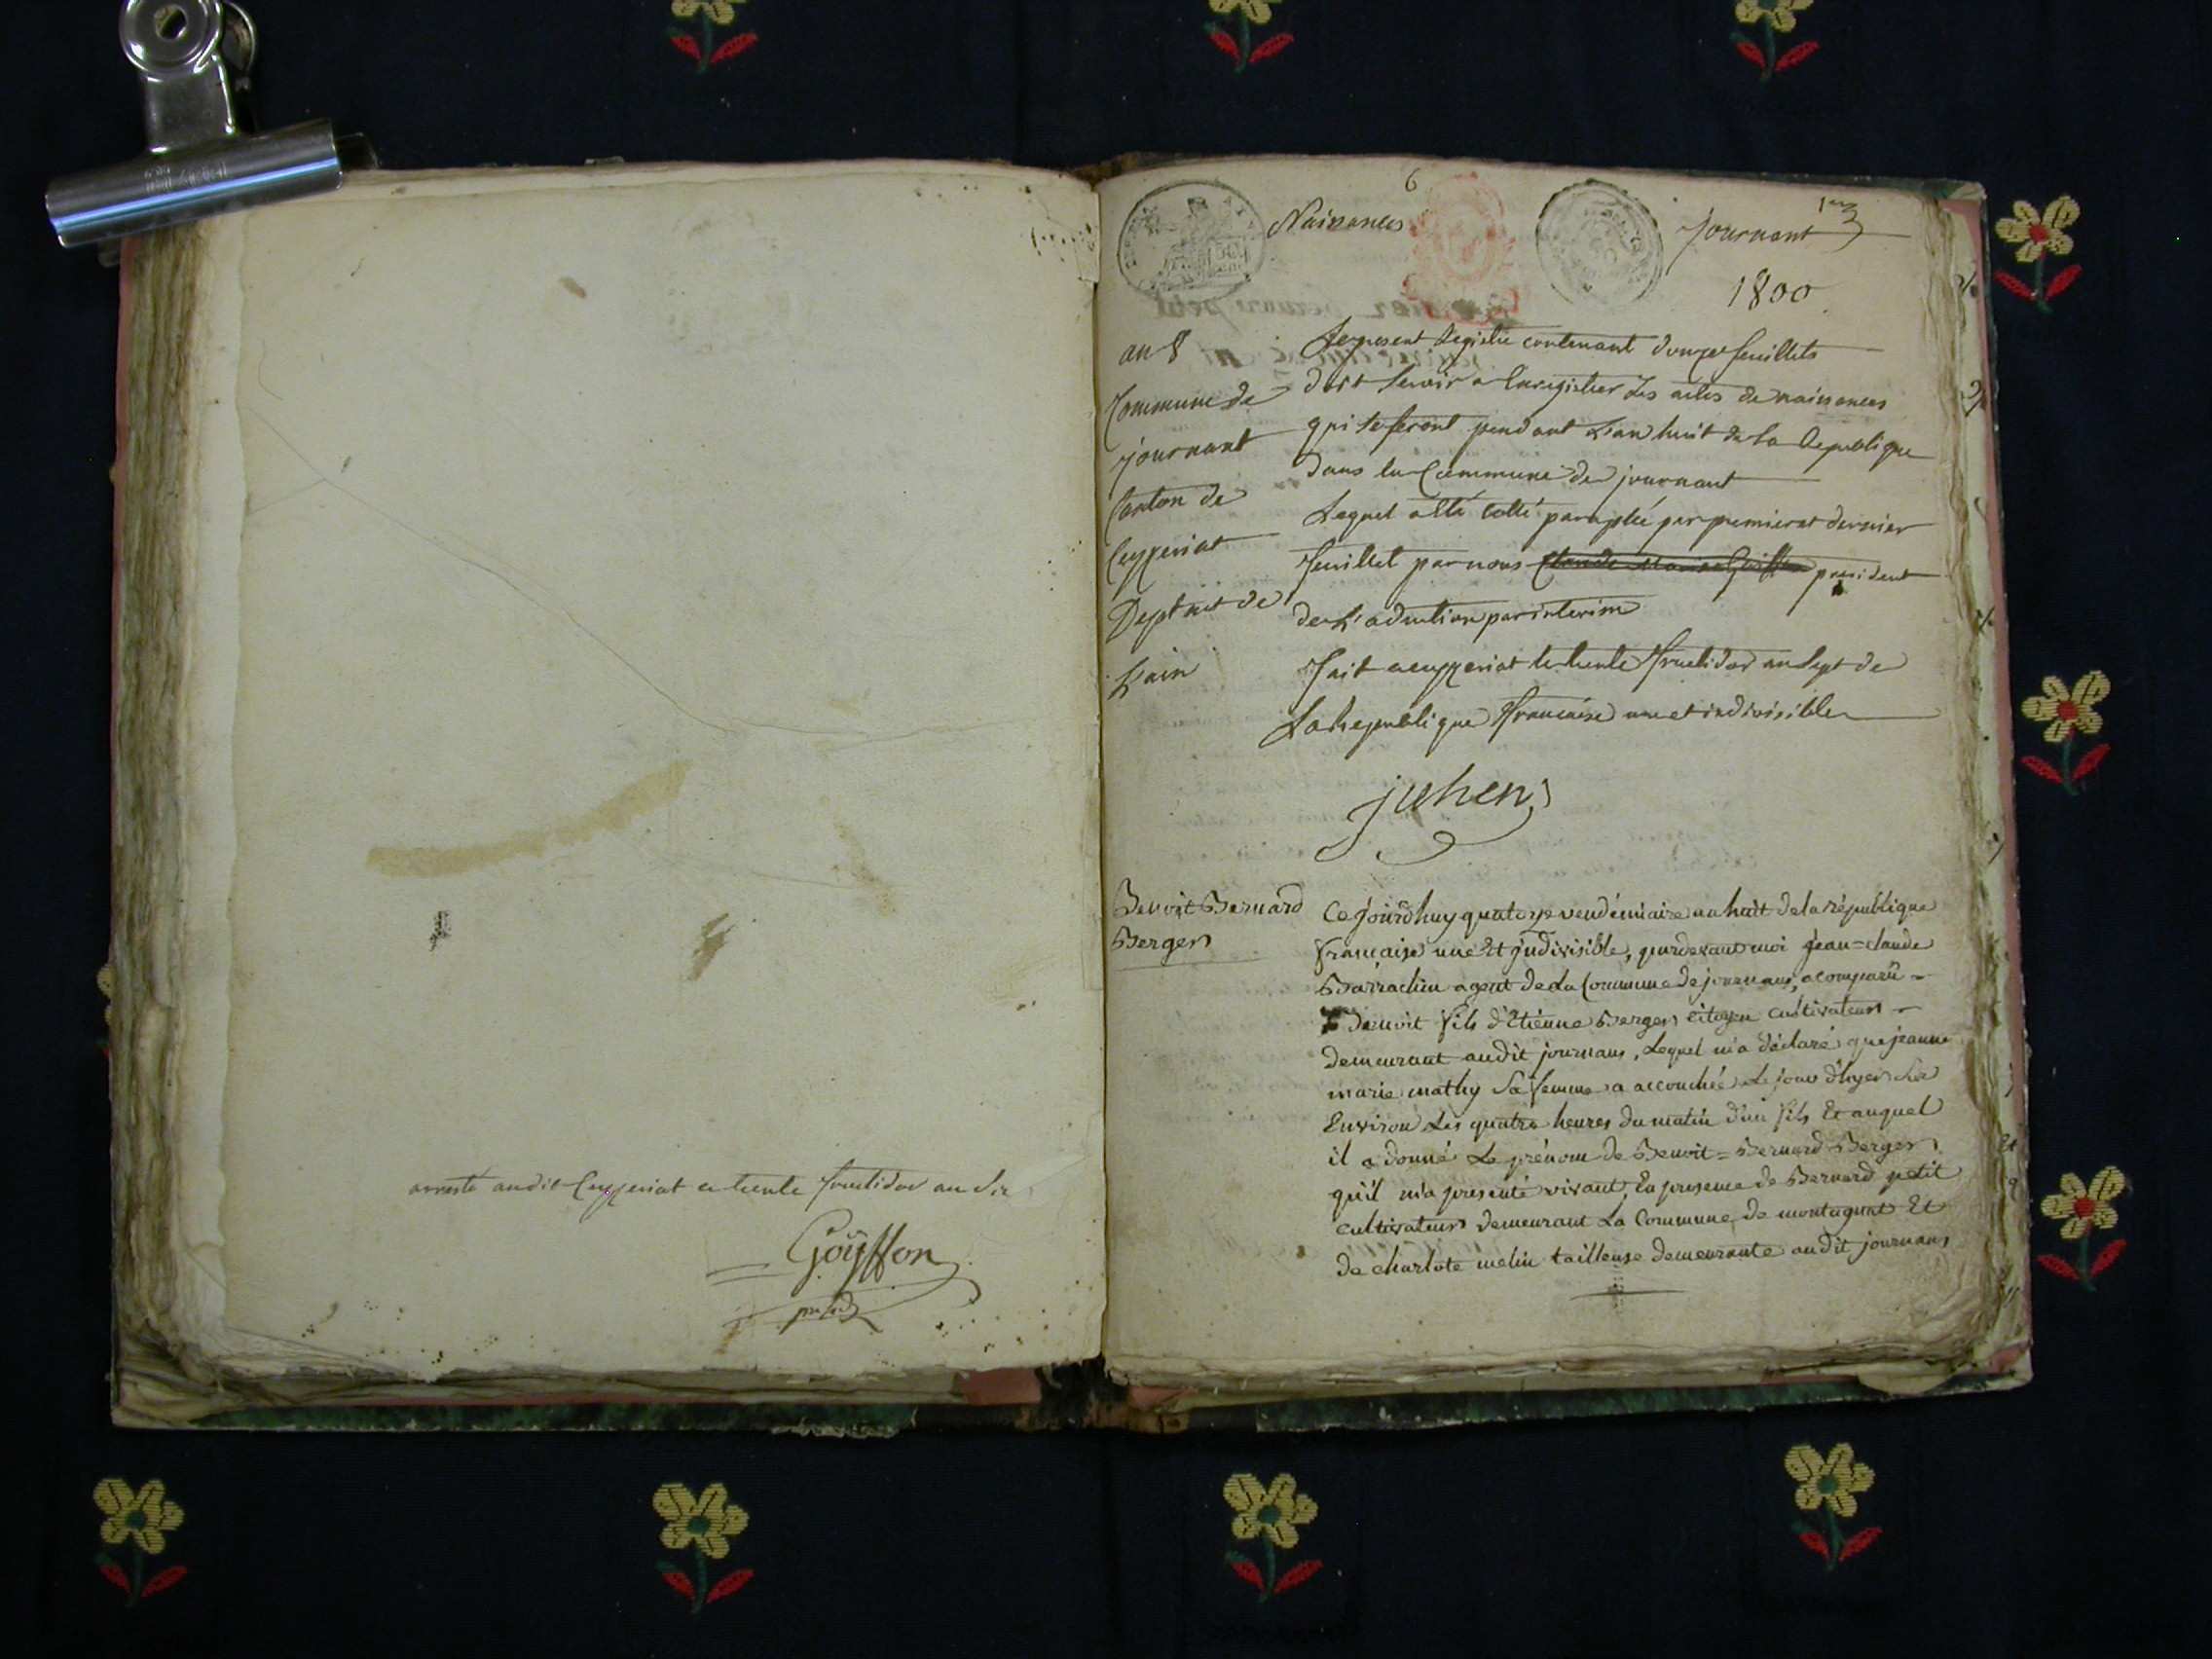 arresté audit Ceyzeriat ce trente fructidor an six
Goÿffon
6
Naissances
1er
journant
1800
an 8
Commune de
journant
Canton de
Ceyzeriat
Deptmt de
L'ain
Le present Registre contenant douze feuillets
doit servir a Enregistrer Les actes de naissances
qui se feront pendant L'an huit de la Republique
dans la Commune de journant
Lequel a été cotté paraphé par premier et dernier
feuillet par nous Claude Marie Goiffon president
de L'adnation par interim
Fait a ceyzeriat le trente Fructidor an Sept de
La Republique Francaise une et indivisible
juhen
Benoit Bernard
Berger
Ce jourdhuy quatorze vendémiaire an huit de la république
française une Et jndivisible, pardevant moi jean=claude
Barrachin agent de La Commune de journans, a comparû
Benoit fils d'Etienne Berger citoyen cultivateur
demeurant audit journans, Lequel m'a déclaré que jeanne
marie mathy Sa femme a accouchée Le jour d'hyer
Environ Les quatre heures du matin d'un fils Et auquel
il a donné Le prénom de Benoit=Bernard Berger
qu'il m'a presenté vivant, En presence de Bernard petit
cultivateur demeurant La Commune de montagnat Et
de charlote melin tailleuse demeurante audit journans